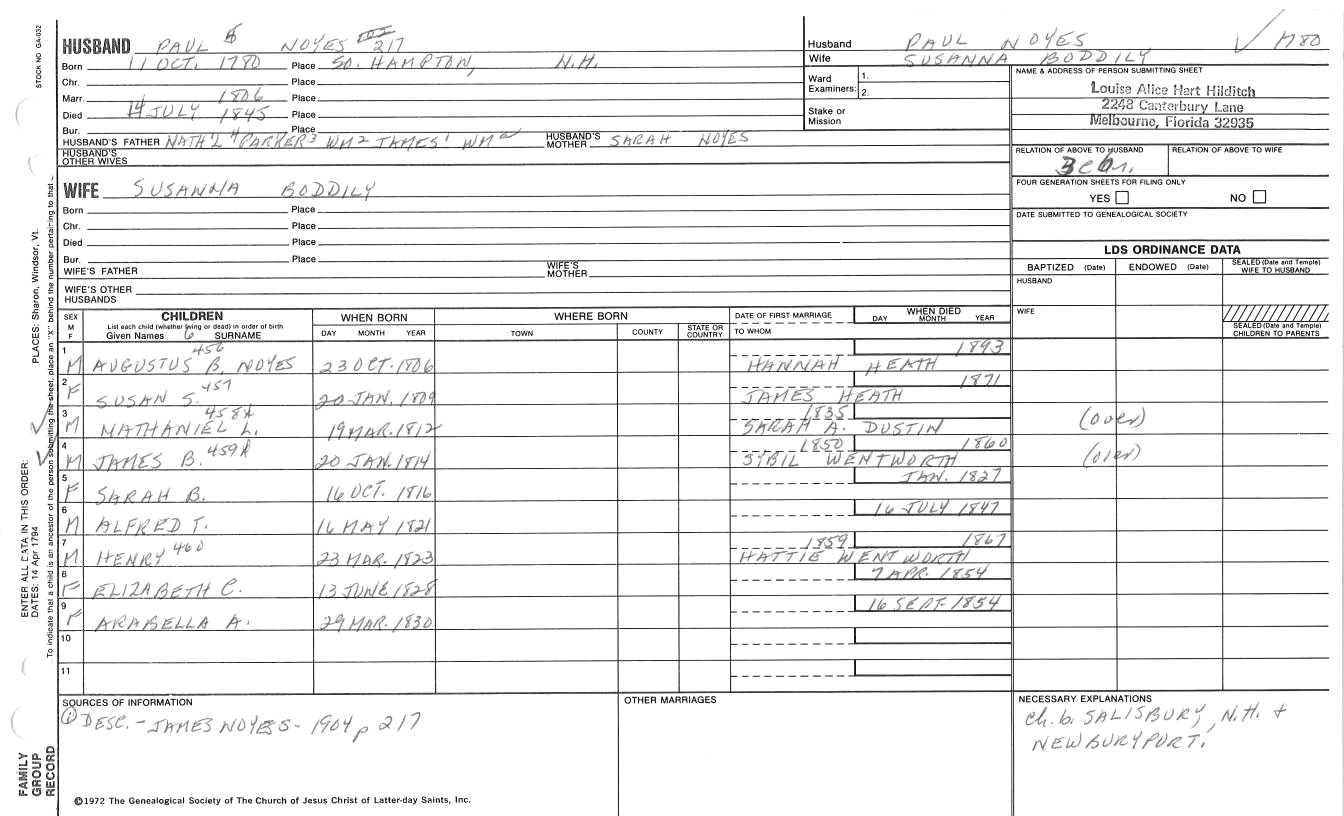 STOCK NO GA-032
PLACES: Sharon, Windsor, Vt.
ENTER ALL DATA IN THIS ORDER:
DATES: 14 Apr 1794
To indicate that a child is an ancestor of the person submitting the sheet, place an "X" behind the number pertaining to that
FAMILY GROUP RECORD
HUSBAND PAUL NOYES 217
Born 11 OCT. 1780 Place SO. HAMPTON, N.H.
Chr. Place
Marr. 1806 Place
Died 14 JULY 1845 Place
Bur. Place
HUSBAND'S FATHER NATH'L 4 PARKER 3 WM 2 JAMES 1 WM a HUSBAND'S MOTHER SARAH NOYES
HUSBAND'S OTHER WIVES
WIFE SUSANNA BODDILY
Born Place
Chr. Place
Died Place
Bur. Place
WIFE'S FATHER WIFE'S MOTHER
WIFE'S OTHER HUSBANDS
Husband PAUL NOYES 1780
Wife SUSANNA BODDILY
Ward Examiners: 1. 2.
Stake or Mission
NAME & ADDRESS OF PERSON SUBMITTING SHEET
Louise Alice Hart Hilditch
2248 Canterbury Lane
Melbourne, Florida 32935
RELATION OF ABOVE TO HUSBAND RELATION OF ABOVE TO WIFE
FOUR GENERATION SHEETS FOR FILING ONLY
YES NO
DATE SUBMITTED TO GENEALOGICAL SOCIETY
LDS ORDINANCE DATA
BAPTIZED (Date) ENDOWED (Date) SEALED (Date and Temple) WIFE TO HUSBAND
HUSBAND
WIFE
SEALED (Date and Temple) CHILDREN TO PARENTS
SEX M F CHILDREN WHEN BORN WHERE BORN DATE OF FIRST MARRIAGE WHEN DIED
List each child (whether living or dead) in order of birth
Given Names 6 SURNAME DAY MONTH YEAR TOWN COUNTY STATE OR COUNTRY TO WHOM DAY MONTH YEAR
1 456 1893
M AUGUSTUS B. NOYES 23 OCT. 1806 HANNAH HEATH
2 457 1871
F SUSAN S. 20 JAN. 1809 JAMES HEATH
3 458 1835
M NATHANIEL L. 19 MAR. 1812 SARAH A. DUSTIN (over)
4 459 1850 1860
M JAMES B. 20 JAN. 1814 SYBIL WENTWORTH (over)
5 JAN. 1827
F SARAH B. 16 OCT. 1816
6 16 JULY 1847
M ALFRED T. 16 MAY 1821
7 460 1859 1867
M HENRY 23 MAR. 1823 HATTIE WENTWORTH
8 7 APR. 1854
F ELIZABETH C. 13 JUNE 1828
9 16 SEPT. 1854
F ARABELLA A. 29 MAR. 1830
10
11
SOURCES OF INFORMATION
① DESC. - JAMES NOYES - 1904 p 217
OTHER MARRIAGES
NECESSARY EXPLANATIONS
Ch. b. SALISBURY, N.H. +
NEWBURYPORT.
©1972 The Genealogical Society of The Church of Jesus Christ of Latter-day Saints, Inc.